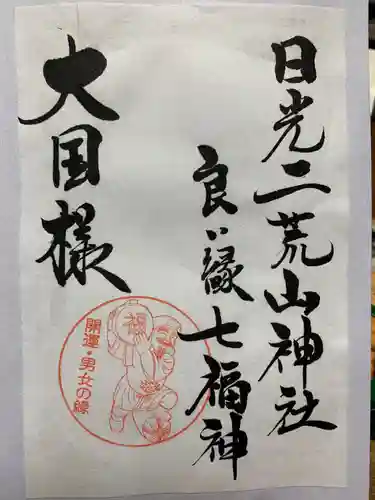 日光二荒山神社
良い縁七福神
大国様
開運・男女の縁
福